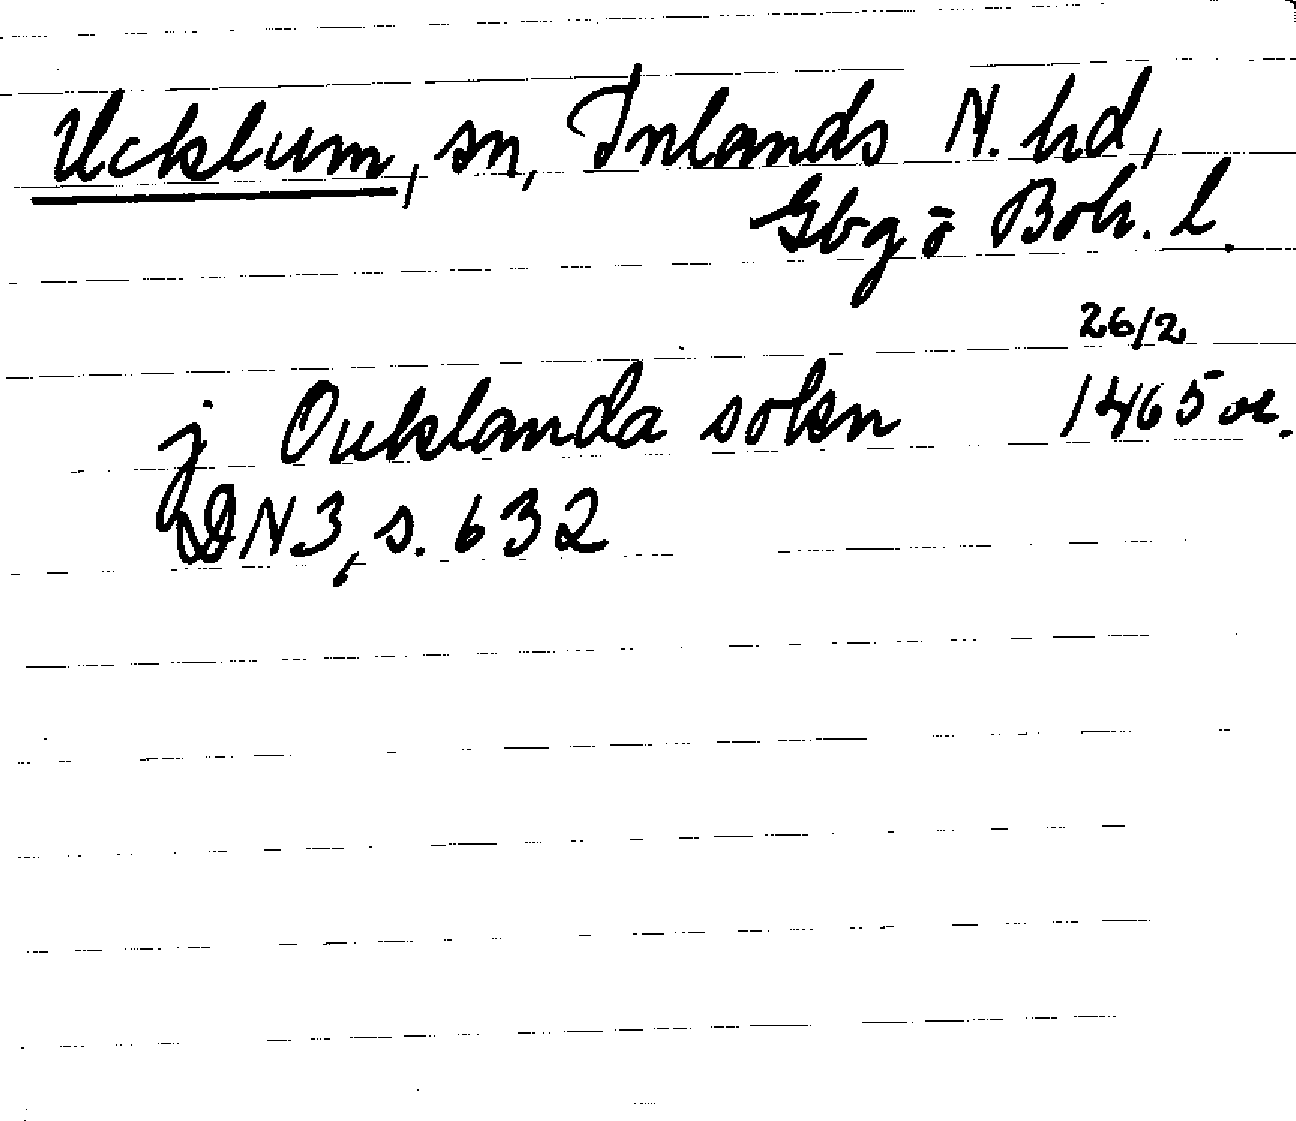 Ucklum, sn, Inlands N. hd,
Gbg o Boh. l.
26/2
j Ouklanda sokn 1465 or.
DN 3, s. 632